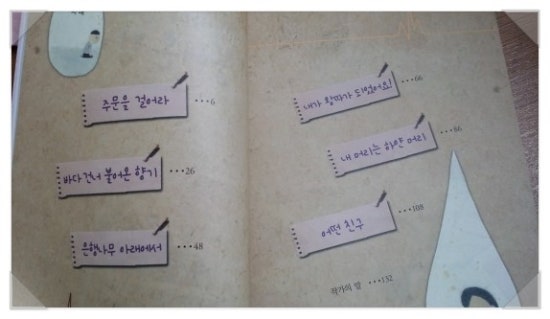 주문을 걸어라 ···6
바다 건너 불어온 향기 ···26
은행나무 아래에서 ···48
내가 왕따가 되었어요! ···66
내 머리는 하얀 머리 ···86
어떤 친구 ···108
작가의 말 ···132